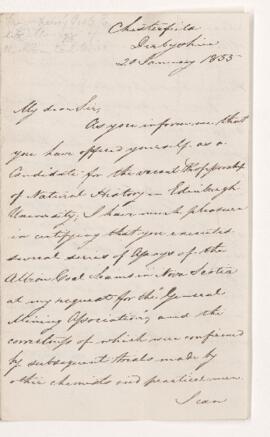 Chesterfield
Derbyshire
20 January 1855
My dear Sir,
As you inform me that
you have offered yourself as a
Candidate for the vacant Professorship
of Natural History in Edinburgh
University, I have much pleasure
in certifying that you executed
several series of Assays of the
Albion Coal Seams in Nova Scotia
at my request for the "General
Mining Association," and the
correctness of which were confirmed
by subsequent trials made by
other chemists and practical men.
I can